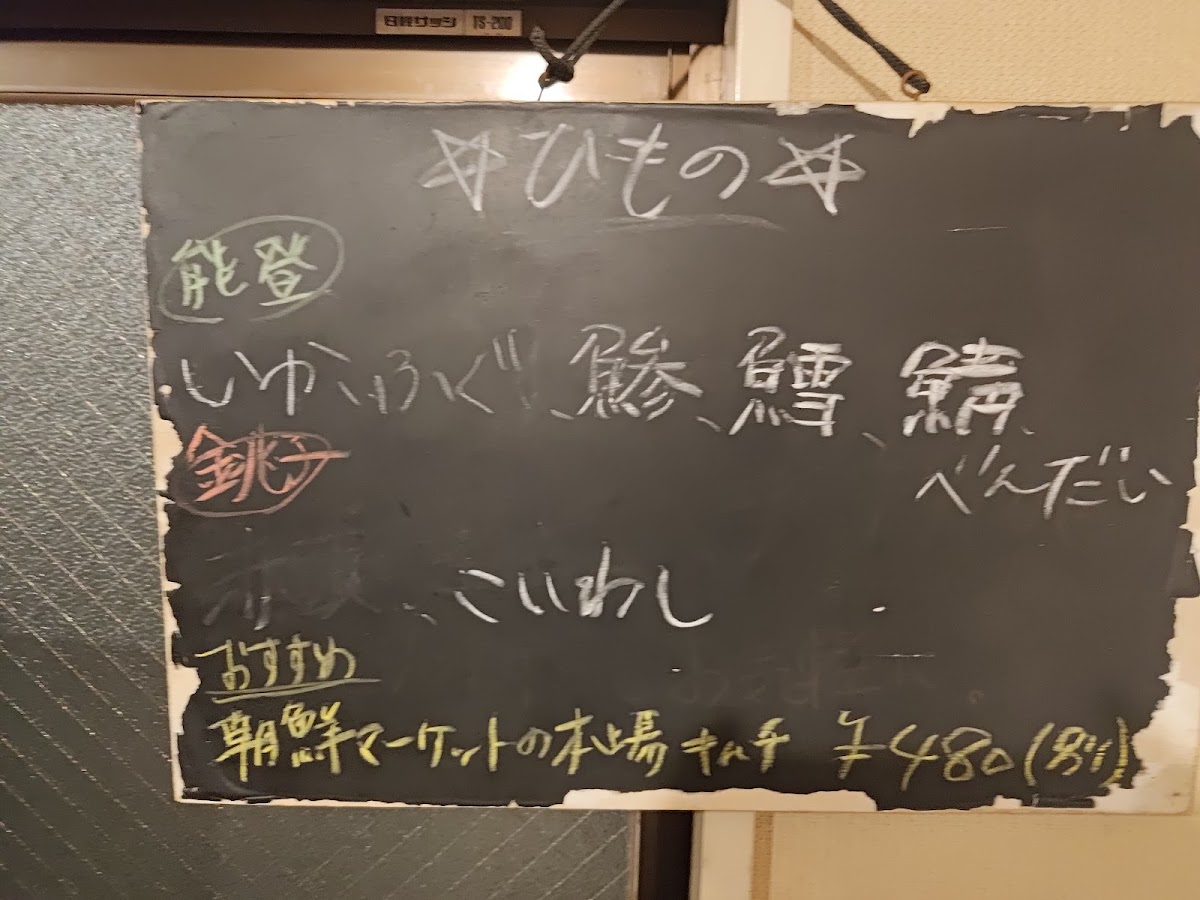 日軽サッシ TS-200
☆ひもの☆
能登
いか、ふぐ、鯵、鱈、鯖、
べんだい
銚子
、こいわし
おすすめ
朝鮮マーケットの本場キムチ ¥480(別)